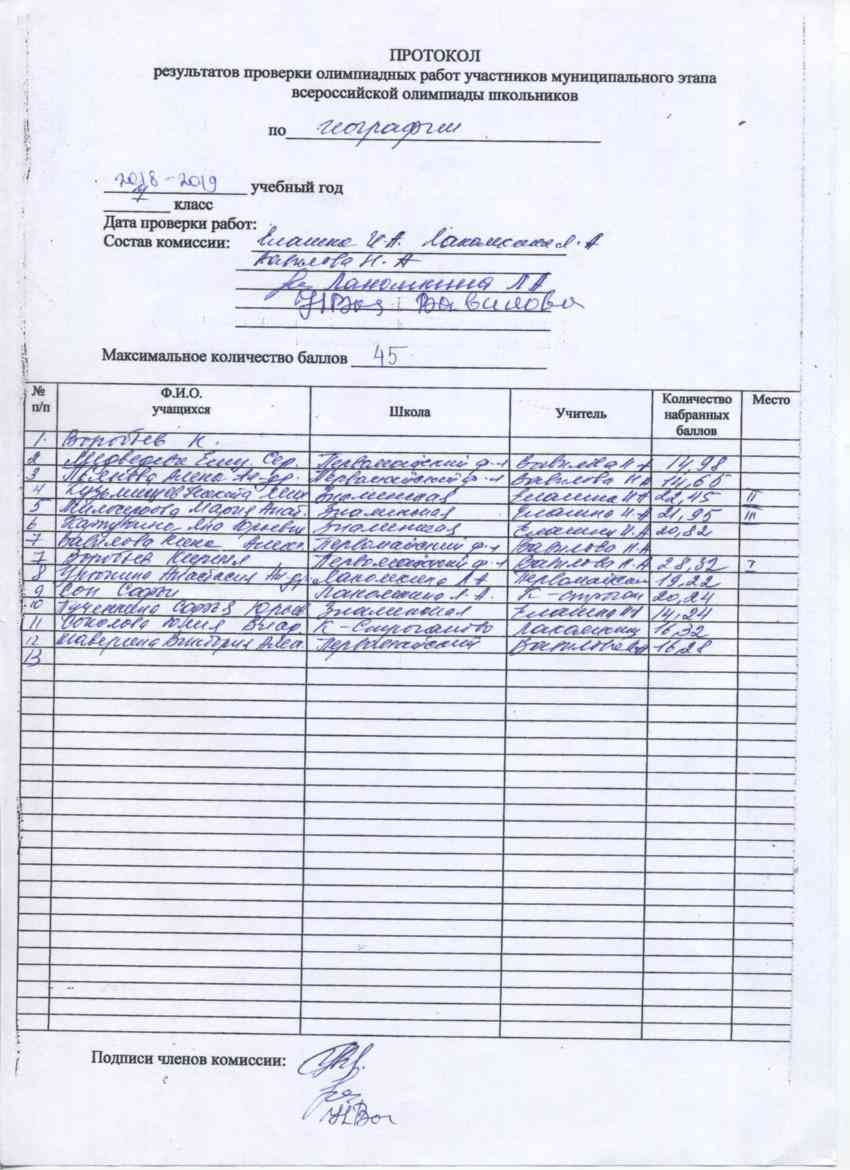 ПРОТОКОЛ
результатов проверки олимпиадных работ участников муниципального этапа
всероссийской олимпиады школьников
по географии
2018-2019 учебный год
7 класс
Дата проверки работ:
Состав комиссии: Елашкина И.А. Лакомкина Л.А
Вавилова Н.А
Лакомкина ЛА
НВав Вавилова
Максимальное количество баллов 45
№ п/п Ф.И.О. учащихся Школа Учитель Количество набранных баллов Место
1. Воробьев К.
2 Медведева Сер. Первомайский ф-л Вавилова НА 14,98
3 Алена Первомайский ф-л Вавилова НА 14,65
4 Никита Знаменская НА 22,45 II
5 Мария Анат. Знаменская И.А 21,95 III
6 Яна Юрьевн Знаменская И.А 20,32
7 Вавилова Алекс. Первомайский ф-л Вавилова Н.А
7 Воробьев Кирилл Первомайский ф-л Вавилова НА 28,32 I
8 Анастасия Лакомкина ЛА Первомайская 19,22
9 Сон Софья Лакомкина Л.А. К-строган 20,24
10 София Юрьев Знаменская 14,24
11 Соколова Юлия Влад. К-Строганово Лакомкин 16,32
12 Виктория Алекс Первомайский Вавилова 16,28
13
Подписи членов комиссии:
НВав